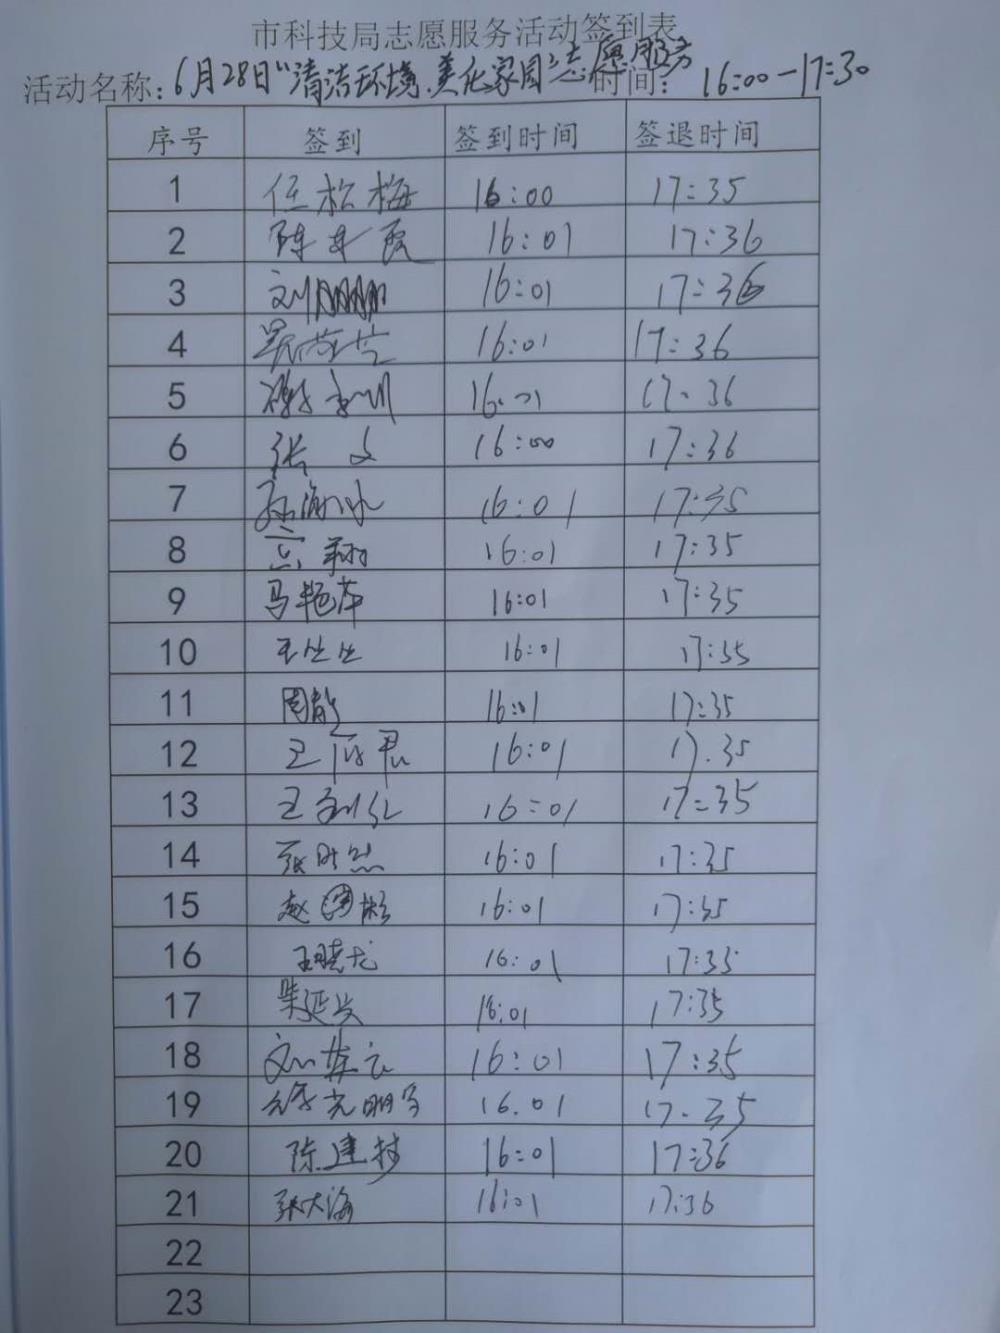 市科技局志愿服务活动签到表
活动名称：6月28日“清洁环境.美化家园”志愿服务 时间： 16:00-17:30
序号 签到 签到时间 签退时间
1 任松梅 16:00 17:35
2 陈 霞 16:01 17:36
3 刘鹏鹏 16:01 17:36
4 16:01 17:36
5 16.01 17.36
6 张文 16:00 17:36
7 孙海冰 16:01 17:35
8 翔 16:01 17:35
9 马艳萍 16:01 17:35
10 王丛丛 16:01 17:35
11 周龄 16:01 17:35
12 王 君 16:01 17.35
13 王 红 16:01 17:35
14 张 然 16:01 17:35
15 赵 彬 16:01 17:35
16 王晓龙 16:01 17:35
17 柴延兴 16:01 17:35
18 刘英云 16:01 17:35
19 光明 16.01 17.35
20 陈建村 16:01 17:36
21 张大海 16:01 17:36
22
23